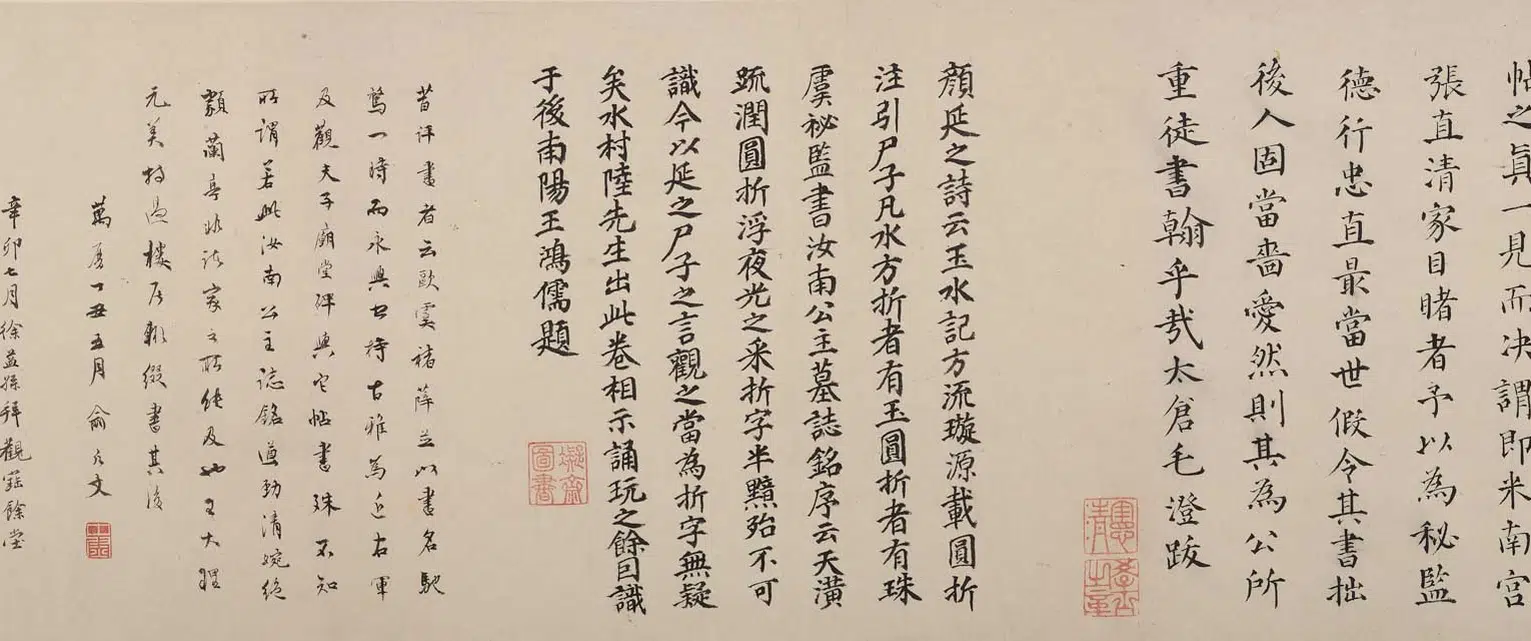 帖之真一見而決謂即米南宮
張直清家目睹者予以為秘監
德行忠直最當世假令其書拙
後人固當嗇愛然則其為公所
重徒書翰乎哉太倉毛澄跋
顏延之詩云玉水記方流璇源載圓折
注引尸子凡水方折者有玉圓折者有珠
虞祕監書汝南公主墓誌銘序云天潢
疏潤圓折浮夜光之采折字半黯殆不可
識今以延之尸子之言觀之當為折字無疑
矣水村陸先生出此卷相示誦玩之餘因識
于後南陽王鴻儒題
昔評書者云歐虞褚薛並以書名馳
驚一時而永興書特古雅為近右軍
及觀夫子廟堂碑與它帖書殊不知
所謂若此汝南公主誌銘遒勁清婉絕
類蘭亭非諸家之所能及也王大理
元美特過樓居輒綴書其後
萬曆丁丑五月俞允文
辛卯七月徐益孫拜觀
餘堂
凝齋圖書